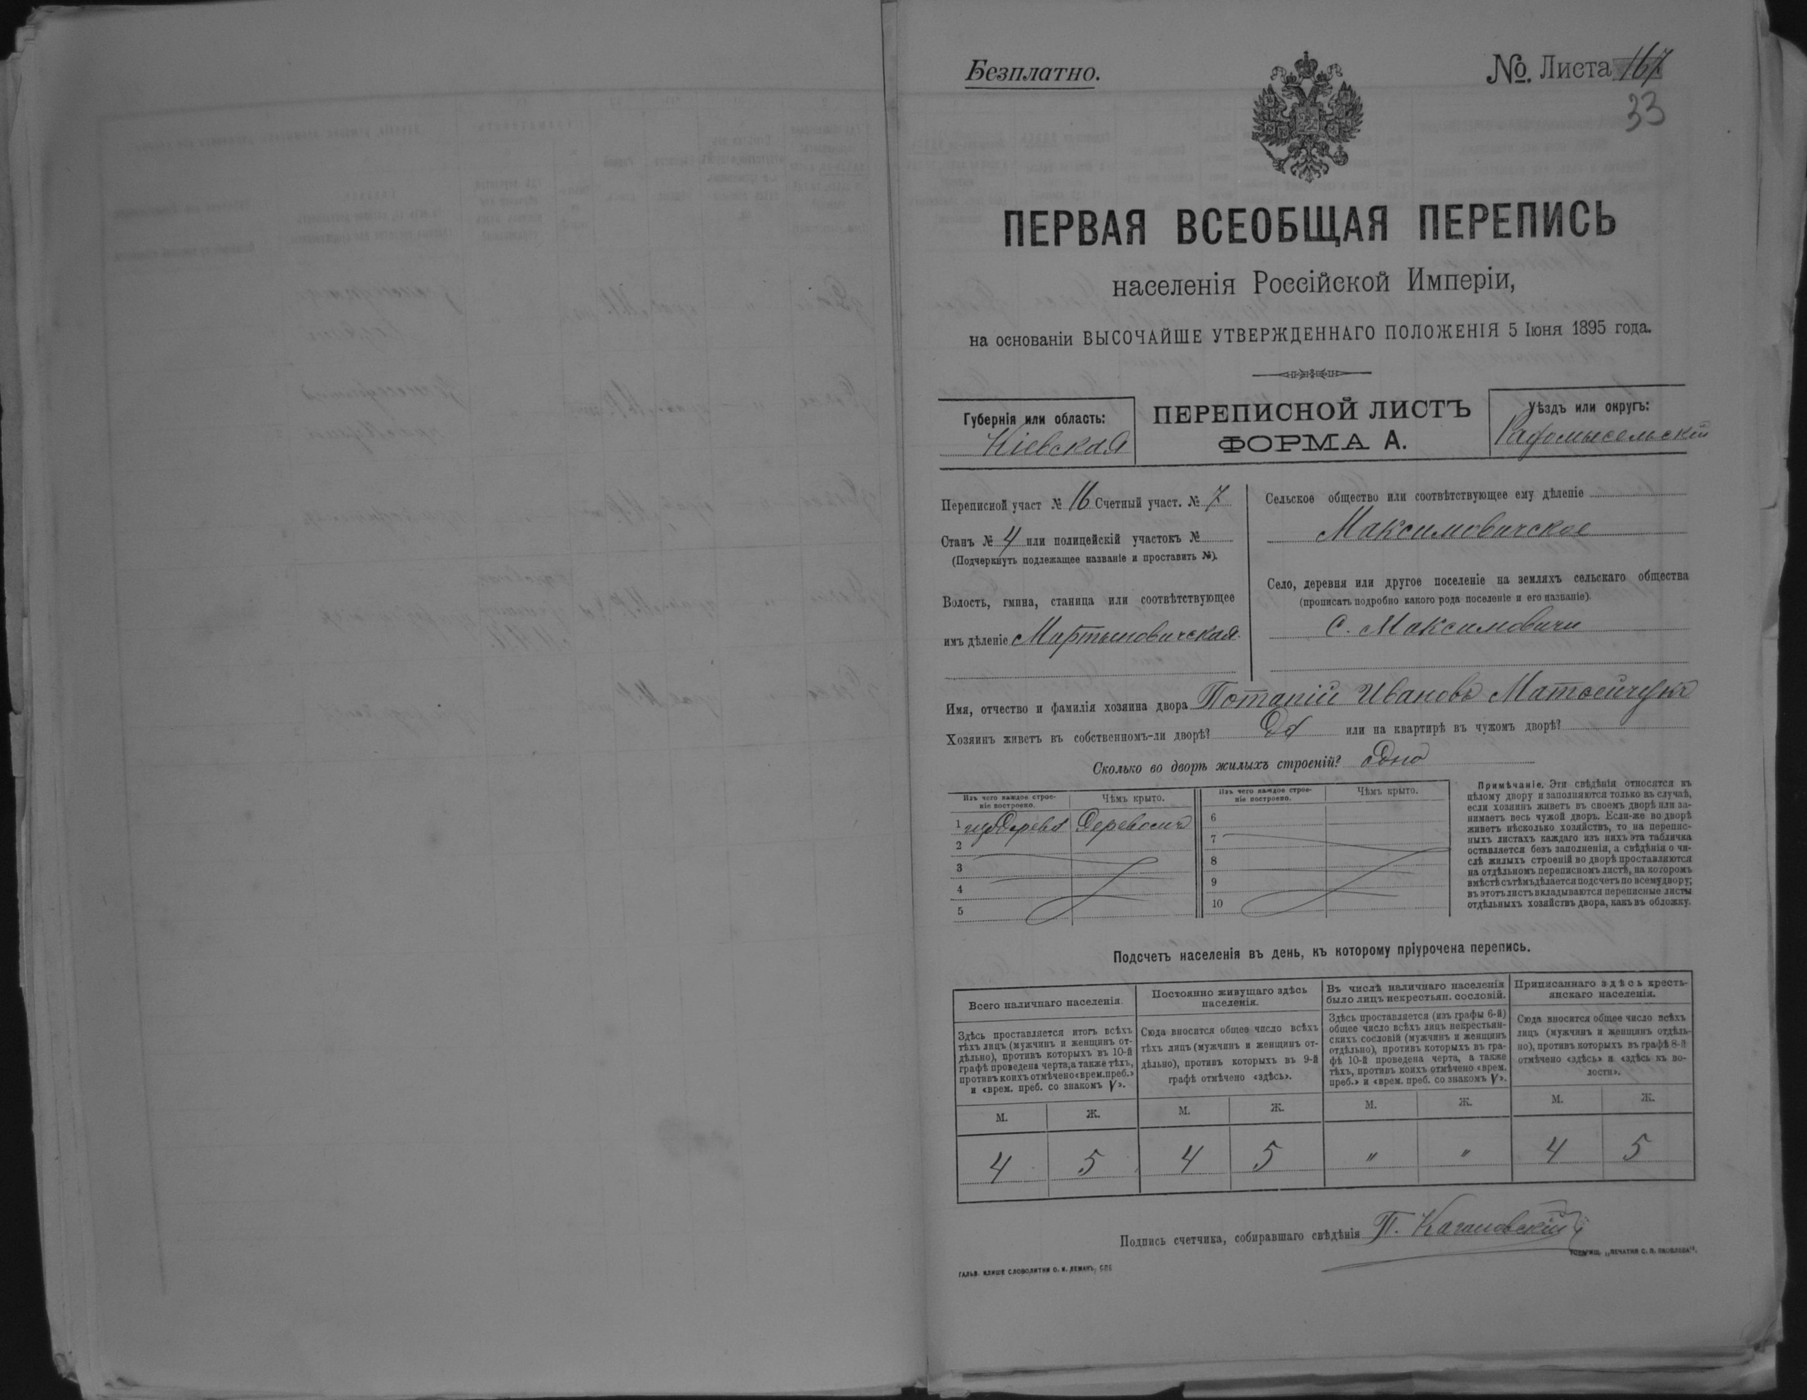 Безплатно.
№ Листа 167
33
ПЕРВАЯ ВСЕОБЩАЯ ПЕРЕПИСЬ
населенія Россійской Имперіи,
на основаніи ВЫСОЧАЙШЕ УТВЕРЖДЕННАГО ПОЛОЖЕНІЯ 5 Іюня 1895 года.
Губернія или область:
Кіевская
ПЕРЕПИСНОЙ ЛИСТЪ
ФОРМА А.
Уѣздъ или округъ:
Радомысельскій
Переписной участ № 16 Счетный участ. № 7
Станъ № 4 или полицейскій участокъ №
(Подчеркнуть подлежащее названіе и проставить №).
Волость, гмина, станица или соотвѣтствующее
имъ дѣленіе Мартыновичская
Сельское общество или соотвѣтствующее ему дѣленіе
Максимовичское
Село, деревня или другое поселеніе на земляхъ сельскаго общества
(прописать подробно какого рода поселеніе и его названіе)
с. Максимовичи
Имя, отчество и фамилія хозяина двора Потапій Ивановъ Матвейчукъ
Хозяинъ живетъ въ собственномъ-ли дворѣ? Да или на квартирѣ въ чужомъ дворѣ?
Сколько во дворѣ жилыхъ строеній? Одно
Изъ чего каждое строе-
ніе построено.
Чѣмъ крыто.
1 издерева Деревомъ
2
3
4
5
Изъ чего каждое строе-
ніе построено.
Чѣмъ крыто.
6
7
8
9
10
Примѣчаніе. Эти свѣдѣнія относятся къ
цѣлому двору и заполняются только въ случаѣ,
если хозяинъ живетъ въ своемъ дворѣ или за-
нимаетъ весь чужой дворъ. Если-же во дворѣ
живетъ нѣсколько хозяйствъ, то на перепис-
ныхъ листахъ каждаго изъ нихъ эта табличка
оставляется безъ заполненія, а свѣдѣнія о чи-
слѣ жилыхъ строеній во дворѣ проставляются
на отдѣльномъ переписномъ листѣ, на которомъ
вмѣстѣ съ тѣмъ дѣлается подсчетъ по всему двору;
въ этотъ листъ вкладываются переписные листы
отдѣльныхъ хозяйствъ двора, какъ въ обложку.
Подсчетъ населенія въ день, къ которому пріурочена перепись.
Всего наличнаго населенія.
Здѣсь проставляется итогъ всѣхъ
тѣхъ лицъ (мужчинъ и женщинъ от-
дѣльно), противъ которыхъ въ 10-й
графѣ проведена черта, а также тѣхъ,
противъ коихъ отмѣчено «врем. преб.»
и «врем. преб. со знакомъ V».
Постоянно живущаго здѣсь
населенія.
Сюда вносится общее число всѣхъ
тѣхъ лицъ (мужчинъ и женщинъ от-
дѣльно), противъ которыхъ въ 9-й
графѣ отмѣчено «здѣсь».
Въ числѣ наличнаго населенія
было лицъ некрестьян. сословій.
Здѣсь проставляется (изъ графы 6-й)
общее число всѣхъ лицъ некрестьян-
скихъ сословій (мужчинъ и женщинъ
отдѣльно), противъ которыхъ въ гра-
фѣ 10-й проведена черта, а также
тѣхъ, противъ коихъ отмѣчено «врем.
преб.» и «врем. преб. со знакомъ V».
Приписаннаго здѣсь кресть-
янскаго населенія.
Сюда вносится общее число всѣхъ
лицъ (мужчинъ и женщинъ отдѣль-
но), противъ которыхъ въ графѣ 8-й
отмѣчено «здѣсь» и «здѣсь въ во-
лости».
М. Ж. М. Ж. М. Ж. М. Ж.
4 5 4 5 " " 4 5
Подпись счетчика, собиравшаго свѣдѣнія П. Качановскій
ГАЛЬВ. КЛИШЕ СЛОВОЛИТНИ О. И. ЛЕМАНЪ, СПБ
ТОВАРИЩ. „ПЕЧАТНЯ С. П. ЯКОВЛЕВА".